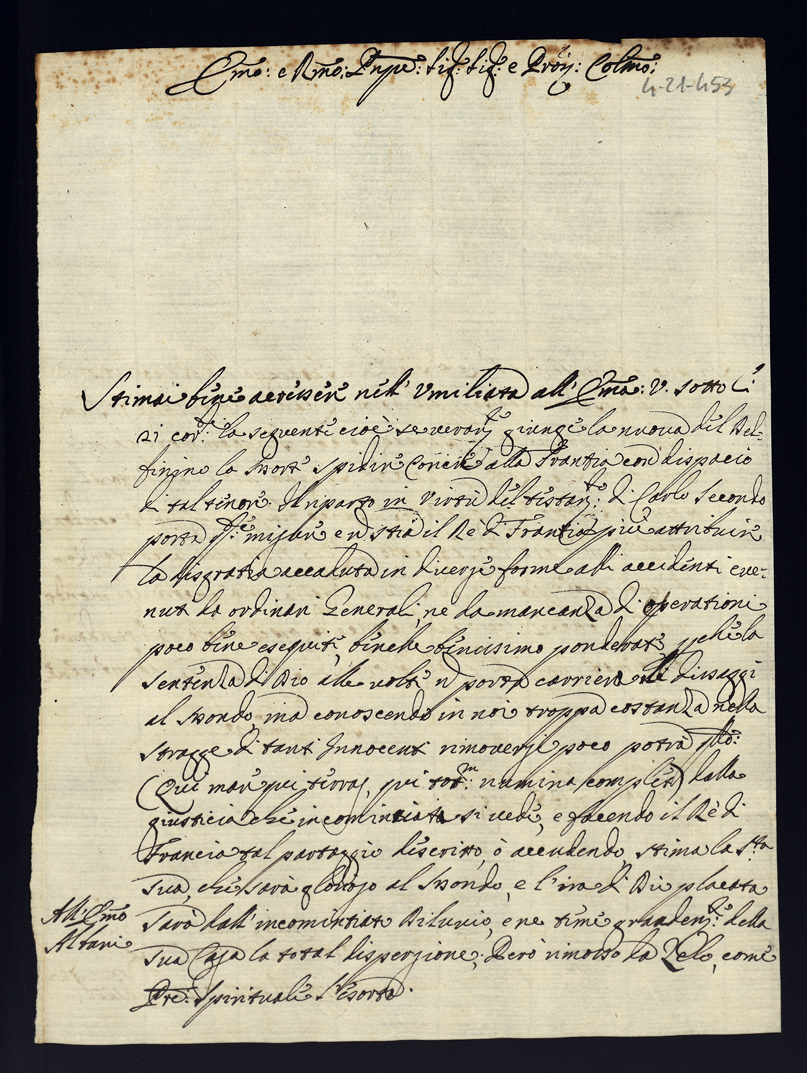 Emo: e Rmo: Pnpe: Sig: Sig: e Prõn: Colmo:
4-21-453
Stimai bene accescere nell' Umiliata all' Ema: V. sotto li
21 cor.te la seguente cioè se veram.te giunge la nuova del Del=
fingno la Morte spedire alla Frantia con dispacio
di tal tenore. Il riparto in Virtù del testam.to: di Carlo Secondo
porta il Rè di Frantia più attribuire
la disgratia accaduta in diverse forme alli accidenti eve=
nuti da ordinari Generali, ne da mancanza di operationi
poco bene esequite, benche benissimo ponderate, perche la
Sentenza di Dio alle volte n porta carriera
al Mondo, ma conoscendo in noi troppa costanza nella
stragge di tanti Innocenti rimoversi poco potrà
(Qui mare qui terras, qui tot.m numina complet) dalla
giusticia che incominciata si vede, e facendo il Rè di
Francia tal partaggio discritto, ò accudendo, stima la S.tà
Sua, che sarà glorioso al Mondo, e l'ira di Dio placata
All' Emo
Albani
Sarà dall' incomintiato Diluvio, e ne teme grandem.te della
Sua Casa la total dispersione; Però rimosso da Zelo, come
Pre: Spirituale l'esorta.